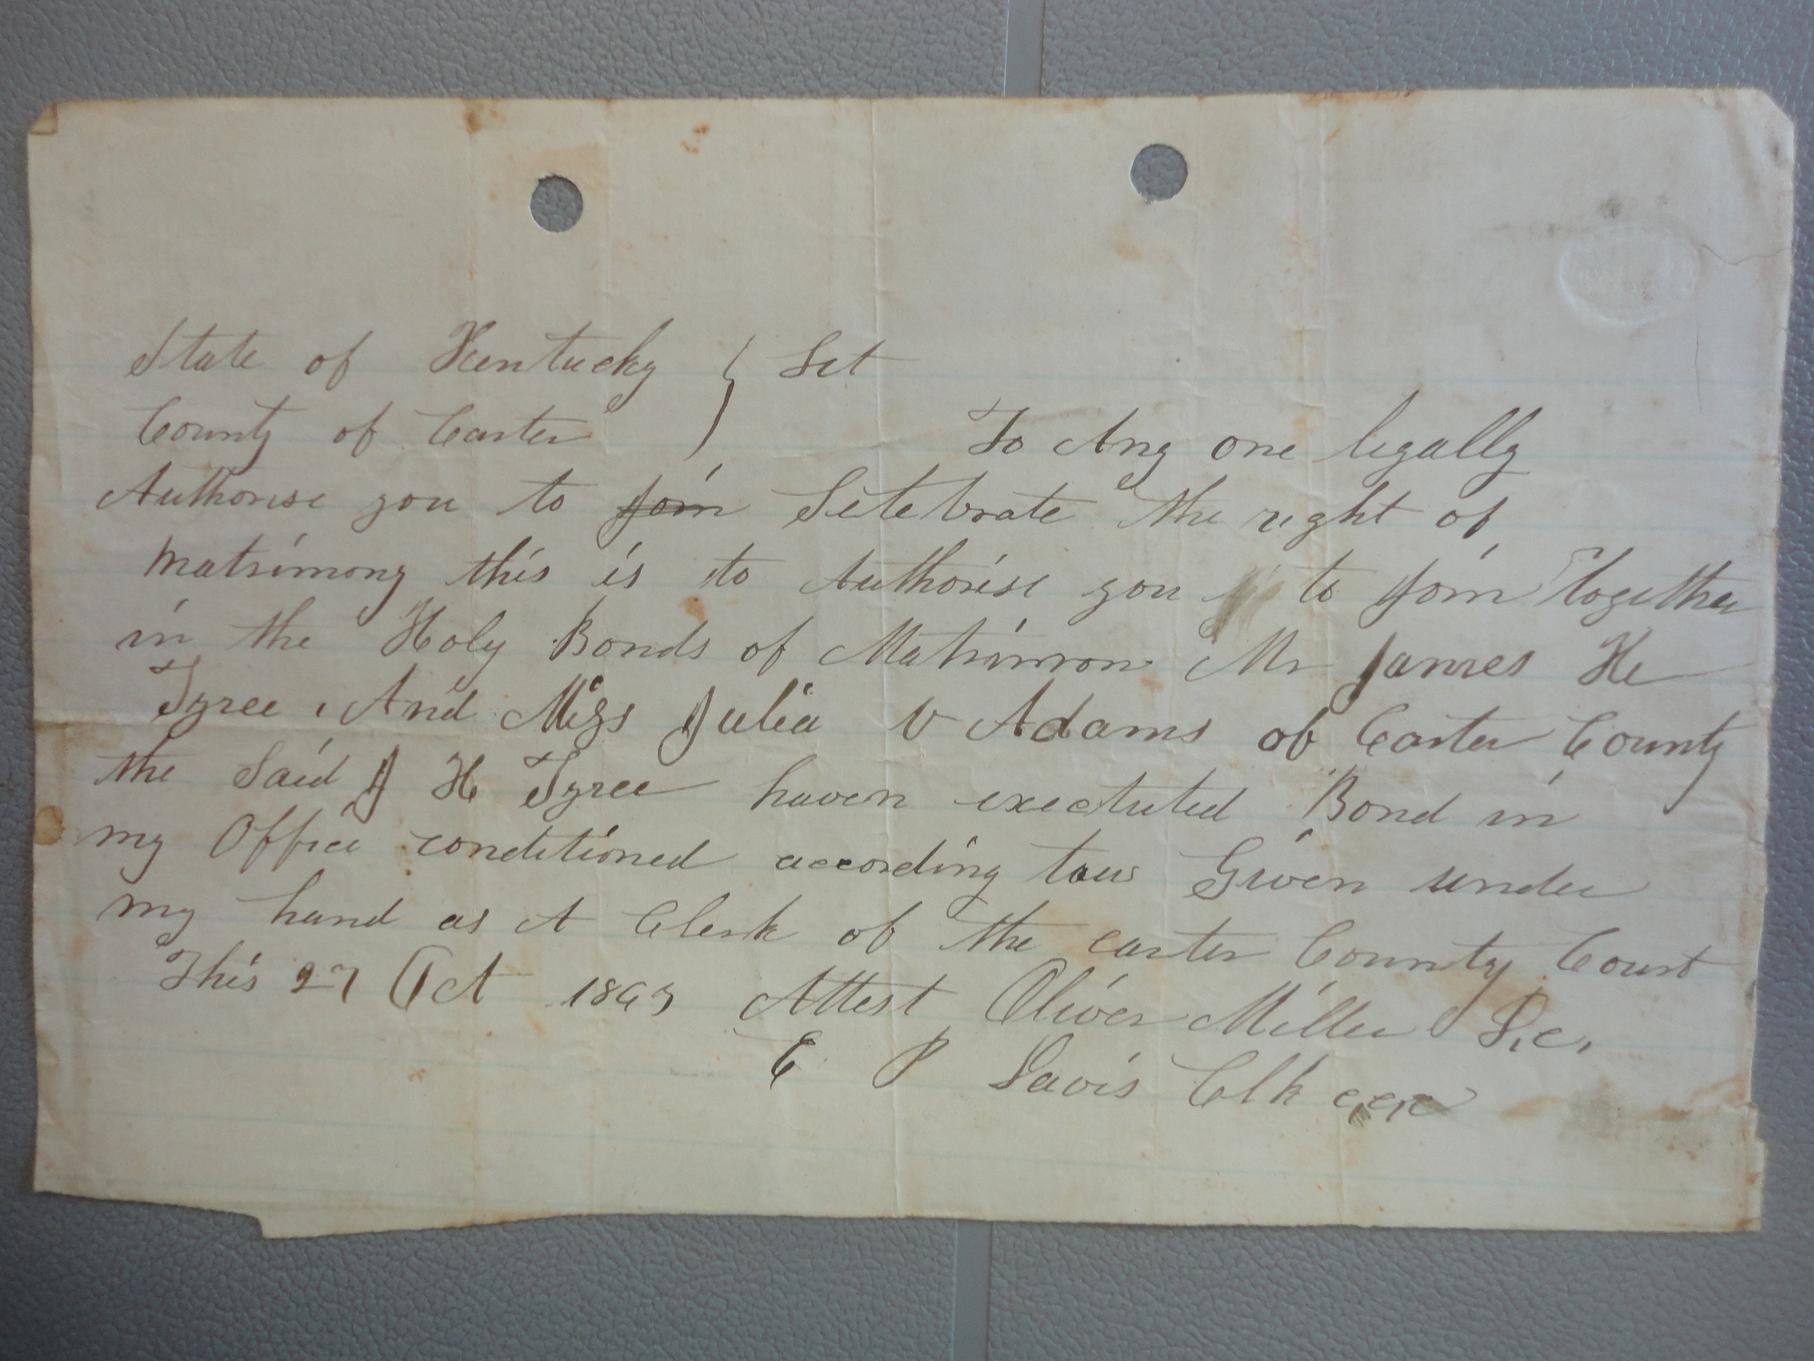 State of Kentucky } Sct
County of Carter
To Any one legally
Authorise you to join Selebrate the right of
Matrimony this is to Authorise you to join together
in the Holy Bonds of Matrimon Mr James H
Tyree, And Miss Julia V Adams of Carter County
the Said J H Tyree haven exectuted Bond in
my Office conditioned according Given under
my hand as A Clerk of the carter County Court
This 27 Oct Attest Oliver Miller D.c.
E P Davis Clk